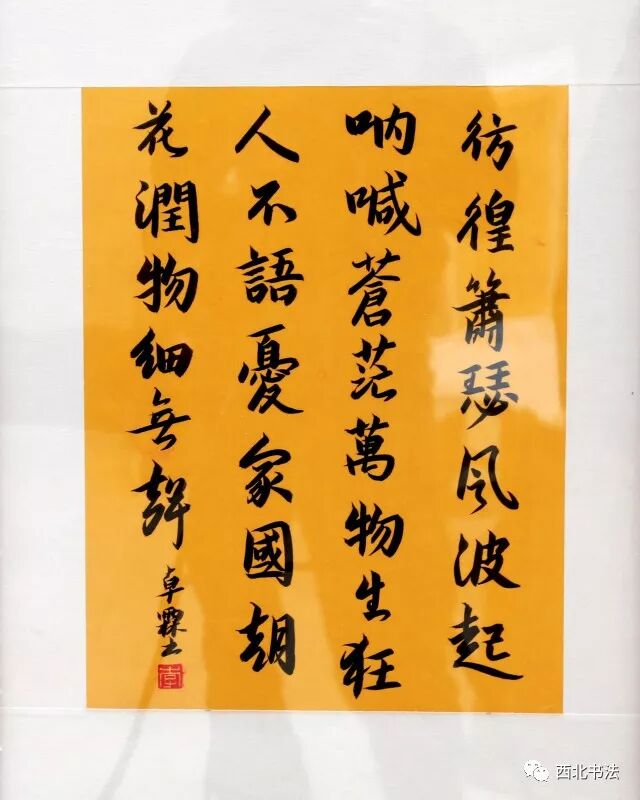 彷徨簫瑟风波起
呐喊蒼茫萬物生狂
人不語憂家國朝
花潤物细無聲
卓霖士
李
西北书法